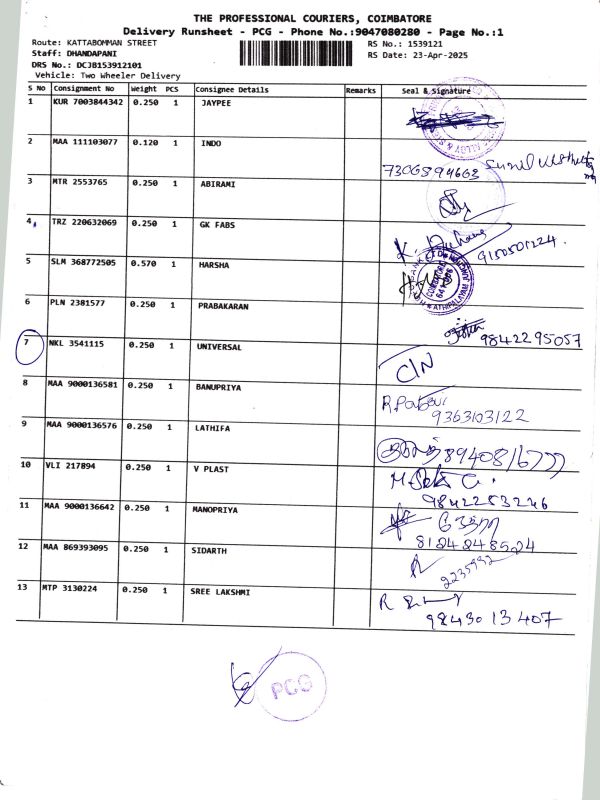 THE PROFESSIONAL COURIERS, COIMBATORE
Delivery Runsheet - PCG - Phone No.:9047080280 - Page No.:1
Route: KATTABOMMAN STREET RS No.: 1539121
Staff: DHANDAPANI RS Date: 23-Apr-2025
DRS No.: DCJB153912101
Vehicle: Two Wheeler Delivery
S No Consignment No Weight PCS Consignee Details Remarks Seal & Signature
1 KUR 7003844342 0.250 1 JAYPEE
2 MAA 111103077 0.120 1 INDO
7306894603
3 MTR 2553765 0.250 1 ABIRAMI
4 TRZ 220632069 0.250 1 GK FABS
9150501224.
5 SLM 368772505 0.570 1 HARSHA
6 PLN 2381577 0.250 1 PRABAKARAN
9842295057
7 NKL 3541115 0.250 1 UNIVERSAL
C/N
8 MAA 9000136581 0.250 1 BANUPRIYA
9363103122
9 MAA 9000136576 0.250 1 LATHIFA
8940816777
10 VLI 217894 0.250 1 V PLAST
9842253246
11 MAA 9000136642 0.250 1 MANOPRIYA
8124248524
12 MAA 869393095 0.250 1 SIDARTH
2235932
13 MTP 3130224 0.250 1 SREE LAKSHMI
9843013407
PCG